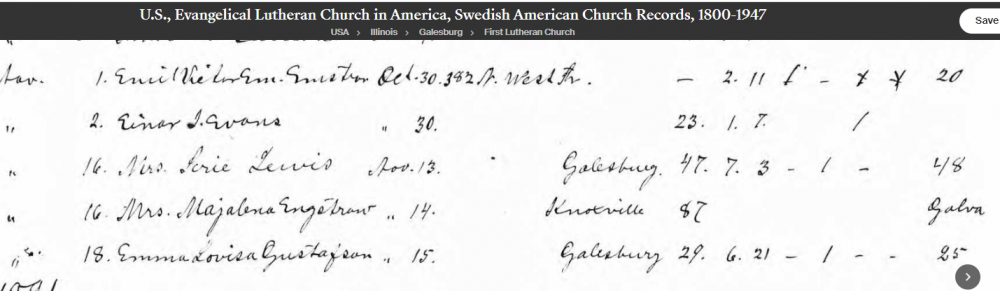 U.S., Evangelical Lutheran Church in America, Swedish American Church Records, 1800-1947
Save
USA > Illinois > Galesburg > First Lutheran Church
Nov. 1. Emil Victor Em. Oct. 30. 382 N. West — 2. 11 - 20
" 2. Einar J. Evans " 30. 23. 1. 7. /
" 16. Mrs. Lewis Nov. 13. Galesburg. 47. 7. 3 - 1 - 48
" 16. Mrs. Majalena Engstrom " 14. Knoxville 87 Galva
" 18. Emma Lovisa Gustafson " 15. Galesburg 29. 6. 21 - 1 - - 25